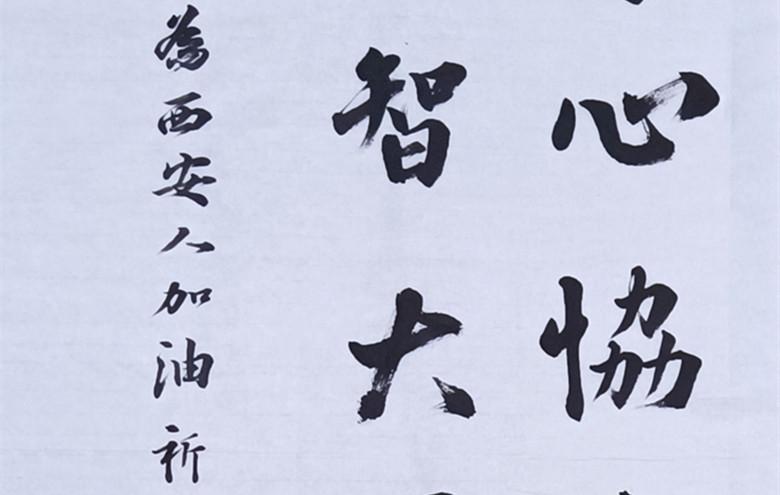 心恊
智大
為西安人加油祈